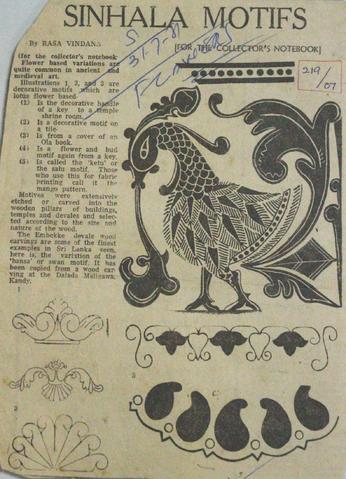 SINHALA MOTIFS
By RASA VINDANA
[FOR THE COLLECTOR'S NOTEBOOK]
219
07
(for the collector's notebook
Flower based variations are
quite common in ancient and
medieval art.
Illustrations 1, 2, and 3 are
decorative motifs which are
lotus flower based
(1) Is the decorative handle
of a key to a temple
shrine room.
(2) Is a decorative motif on
a tile.
(3) Is from a cover of an
Ola book.
(4) Is a flower and bud
motif again from a key.
(5) Is called the 'ketu' or
the salu motif. Those
who use this for fabric
printing call it the
mango pattern.
Motives were extensively
etched or carved into the
wooden pillars of buildings,
temples and devales and selec-
ted according to the size and
nature of the wood.
The Embekke devale wood
carvings are some of the finest
examples in Sri Lanka seen,
here is, the variation of the
'hansa' or swan motif. It has
been copied from a wood car-
ving at the Dalada Maligawa,
Kandy.